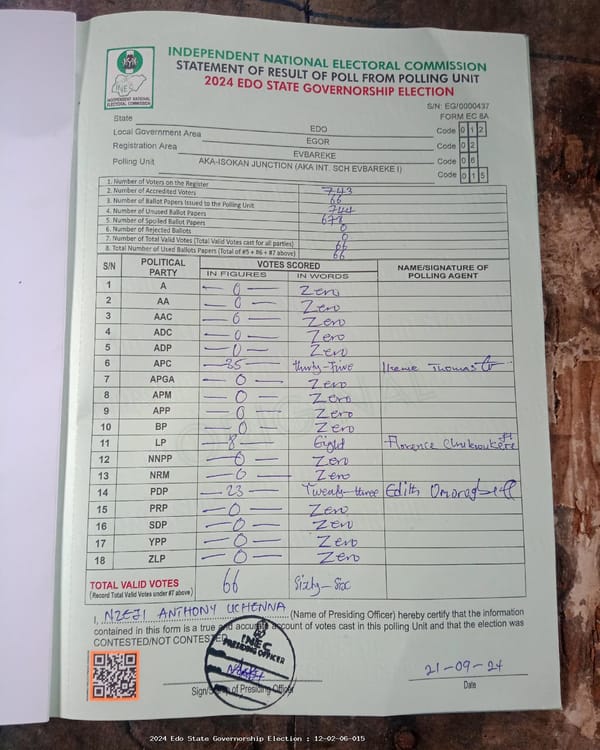 INDEPENDENT NATIONAL ELECTORAL COMMISSION
STATEMENT OF RESULT OF POLL FROM POLLING UNIT
2024 EDO STATE GOVERNORSHIP ELECTION
INEC
INDEPENDENT NATIONAL ELECTORAL COMMISSION
S/N: EG/0000437
FORM EC 8A
State EDO Code 0 1 2
Local Government Area EGOR Code 0 2
Registration Area EVBAREKE Code 0 6
Polling Unit AKA-ISOKAN JUNCTION (AKA INT. SCH EVBAREKE I) Code 0 1 5
1. Number of Voters on the Register 743
2. Number of Accredited Voters 66
3. Number of Ballot Papers Issued to the Polling Unit 744
4. Number of Unused Ballot Papers 678
5. Number of Spoiled Ballot Papers 0
6. Number of Rejected Ballots 0
7. Number of Total Valid Votes (Total Valid Votes cast for all parties) 66
8. Total Number of Used Ballots Papers (Total of #5 + #6 + #7 above) 66
S/N POLITICAL PARTY VOTES SCORED NAME/SIGNATURE OF POLLING AGENT
IN FIGURES IN WORDS
1 A 0 Zero
2 AA 0 Zero
3 AAC 0 Zero
4 ADC 0 Zero
5 ADP 0 Zero
6 APC 35 thirty-five Thomas
7 APGA 0 Zero
8 APM 0 Zero
9 APP 0 Zero
10 BP 0 Zero
11 LP 8 Eight Florence
12 NNPP 0 Zero
13 NRM 0 Zero
14 PDP 23 Twenty-three Edith
15 PRP 0 Zero
16 SDP 0 Zero
17 YPP 0 Zero
18 ZLP 0 Zero
TOTAL VALID VOTES 66 Sixty-Six
(Record Total Valid Votes under #7 above)
I, NZEJI ANTHONY UCHENNA (Name of Presiding Officer) hereby certify that the information
contained in this form is a true and accurate account of votes cast in this polling Unit and that the election was
CONTESTED/NOT CONTESTED
INEC
PRESIDING OFFICER
21-09-24
Sign/Stamp of Presiding Officer Date
2024 Edo State Governorship Election : 12-02-06-015